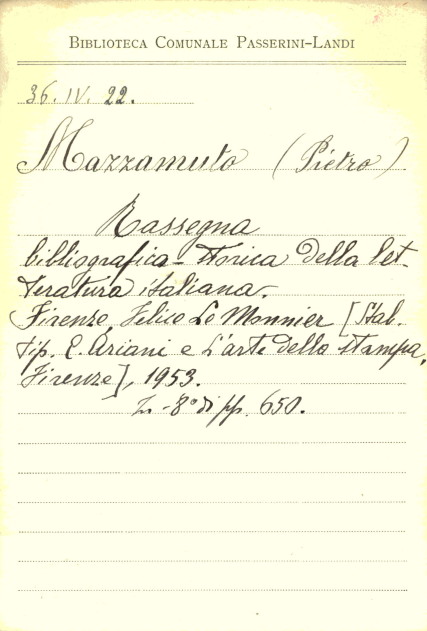 BIBLIOTECA COMUNALE PASSERINI-LANDI
36. IV. 22.
Mazzamuto (Pietro)
Rassegna
bibliografica-storica della let-
teratura italiana.
Firenze, Felice Le Monnier [Stab.
tip. E. Ariani e L'arte della stampa,
Firenze], 1953.
In-8° di pp. 650.